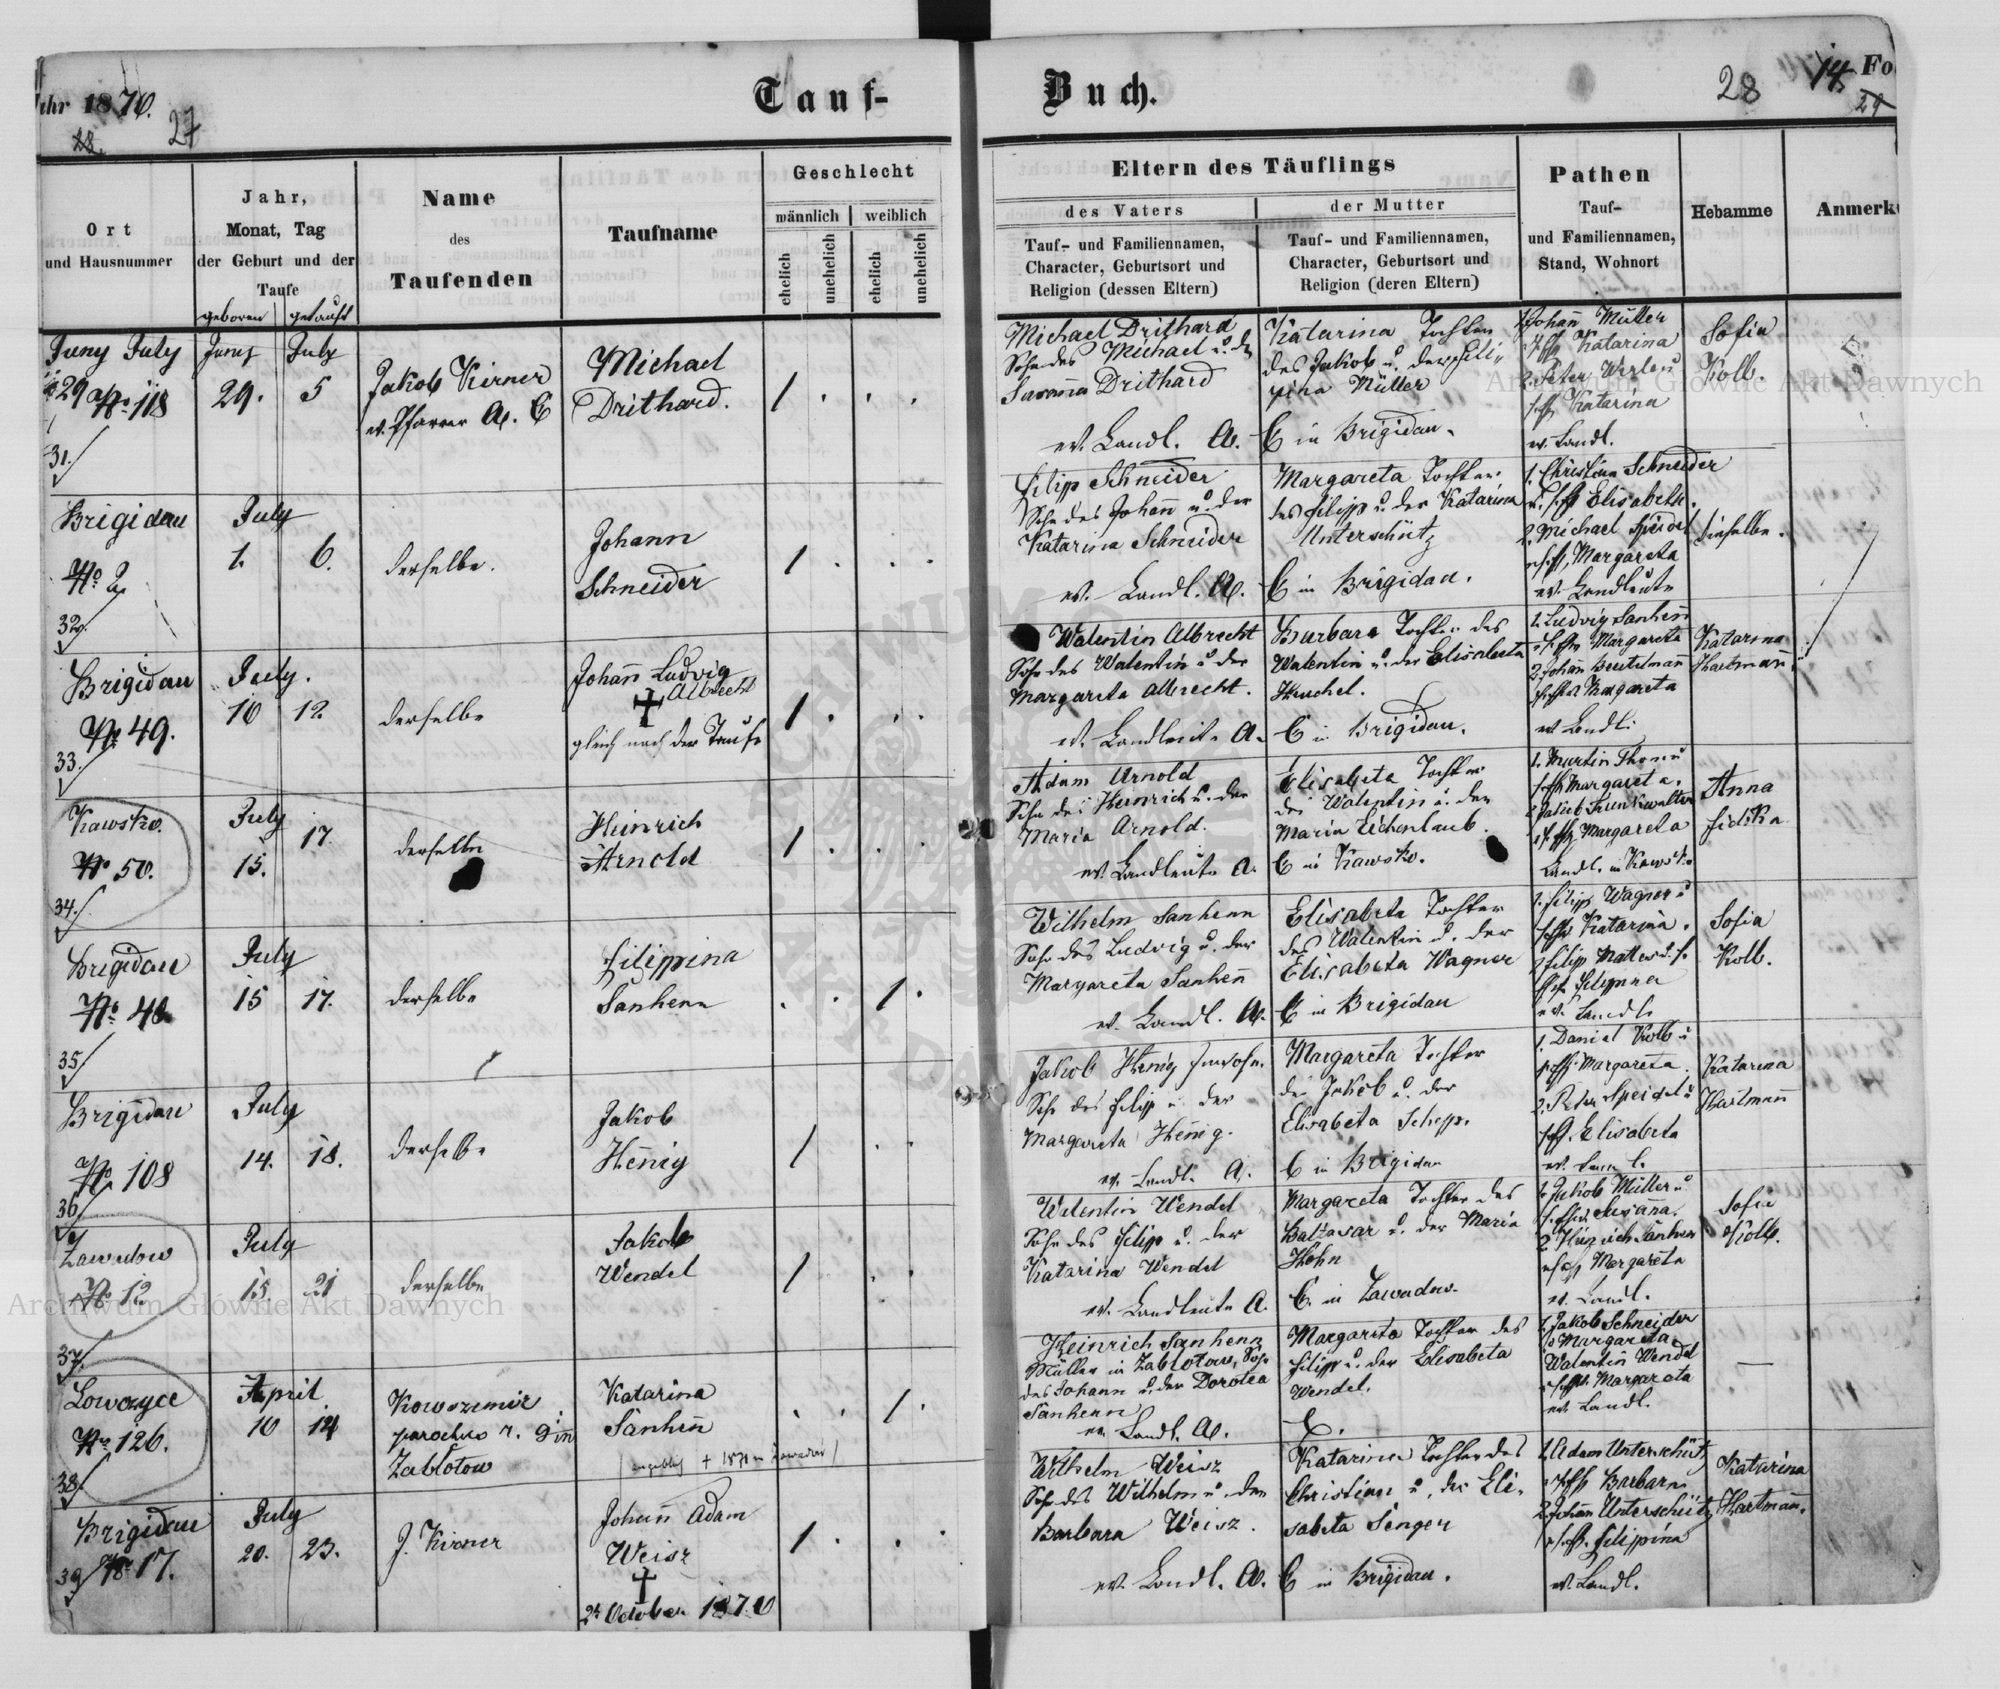 Jahr 1870.
Tauf-
Buch.
28 14. Fo
28. 27
24
Ort
und Hausnummer
Jahr,
Monat, Tag
der Geburt und der
Taufe
geboren getauft
Name
des
Taufenden
Taufname
Geschlecht
männlich weiblich
ehelich unehelich ehelich unehelich
Eltern des Täuflings
des Vaters
Tauf- und Familiennamen,
Character, Geburtsort und
Religion (dessen Eltern)
der Mutter
Tauf- und Familiennamen,
Character, Geburtsort und
Religion (deren Eltern)
Pathen
Tauf-
und Familiennamen,
Stand, Wohnort
Hebamme
Anmerk
Juny July
29 No 118
31.
Juny July
29. 5
Jakob Kirner
ev. Pfarrer A. C
Michael
Drithard.
1 . . .
Michael Drithard
Sohn des Michael u. der
Susanna Drithard
ev. Landl. A.
Katarina Tochter
des Jakob u. der Fili-
pina Müller
C in Brigidau.
1. Johañ Müller
Katarina
2. Peter Werle u
Katarina
ev. Landl.
Sofia
Kolb.
Brigidau
No 2
32.
July
1. 6.
derselbe.
Johann
Schneider
1 . . .
Filipp Schneider
Sohn des Johañ u. der
Katarina Schneider
ev. Landl. A.
Margareta Tochter
des Filipp u. der Katarina
Unterschütz
C in Brigidau.
1. Christian Schneider
Elisabeta.
2. Michael Speidel
Margareta
ev. Landleute
dieselbe.
Brigidau
No 49.
33.
July.
10 12.
derselbe
Johañ Ludvig
Albrecht
†
gleich nach der Taufe
1 . . .
Walentin Albrecht
Sohn des Walentin u. der
Margareta Albrecht.
ev. Landleute A.
Barbara Tochter des
Walentin u. der Elisabeta
Heuchel.
C in Brigidau.
1. Ludvig Sanheñ
Margareta
2. Johañ Beutelmañ
Margareta
ev Landl.
Katarina
Hartmañ
Kawsko.
No 50.
34.
July
15. 17.
derselbe
Heinrich
Arnold
1 . . .
Adam Arnold
Sohn des Heinrich u. der
Maria Arnold.
ev. Landleute A.
Elisabeta Tochter
des Walentin u. der
Maria Eichenlaub.
C in Kawsko.
1. Martin Thom u
Margareta.
2. Jakob
Margareta
Landl. in Kawsko
Anna
Fidika
Brigidau
No 48
35.
July
15 17.
derselbe
Filippina
Sanhenn
. . 1 .
Wilhelm Sanhenn
Sohn des Ludvig u. der
Margareta Sanheñ
ev. Landl. A.
Elisabeta Tochter
des Walentin u. der
Elisabeta Wagner
C in Brigidau
1. Filipp Wagner u
Katarina.
2 Filipp
Filippina
ev. Landl.
Sofia
Kolb.
Brigidau
No 108
36.
July
14. 18.
derselbe
Jakob
Heñig
1 . .
Jakob Heñig
Sohn des Filip u. der
Margareta Heñig.
ev. Landl. A.
Margareta Tochter
des Jakob u. der
Elisabeta Schepp.
C in Brigidau
1. Daniel Kolb u
Margareta.
2. Peter Speidel u
Elisabeta
ev. Landl.
Katarina
Hartmañ
Zawadow
No 12
37.
July
15. 21
derselbe
Jakob
Wendel
1 . .
Walentin Wendel
Sohn des Filipp u. der
Katarina Wendel
ev. Landleute A.
Margareta Tochter des
Baltasar u. der Maria
Hohn
C. in Zawadow.
1. Jakob Müller u
Susaña.
2. Heinrich Sanhenn
Margareta
ev. Landl.
Sofia
Kolb.
Lowczyce
No 126.
38.
April
10 14
Kowszewir
parochus r. g in
Zablotow
Katarina
Sanheñ
. . 1 .
Heinrich Sanhenn
Müller in Zablotow, Sohn
des Johann u. der Dorotea
Sanhenn
ev. Landl. A.
Margareta Tochter des
Filipp u. der Elisabeta
Wendel.
C.
1. Jakob Schneider
Margareta
Walentin Wendel
Margareta
ev. Landl.
—
Brigidau
39 No 17.
July
20. 23.
J. Kirner
Johañ Adam
Weisz
†
24 October 1870
1 . .
Wilhelm Weisz
Sohn des Wilhelm u. der
Barbara Weisz.
ev. Landl. A.
Katarina Tochter des
Christian u. der Eli-
sabeta Senger
C in Brigidau.
1. Adam Unterschütz
Barbara
2. Johañ Unterschütz
Filippina
ev. Landl.
Katarina
Hartmañ.
Archiwum Główne Akt Dawnych
Archiwum Główne Akt Dawnych